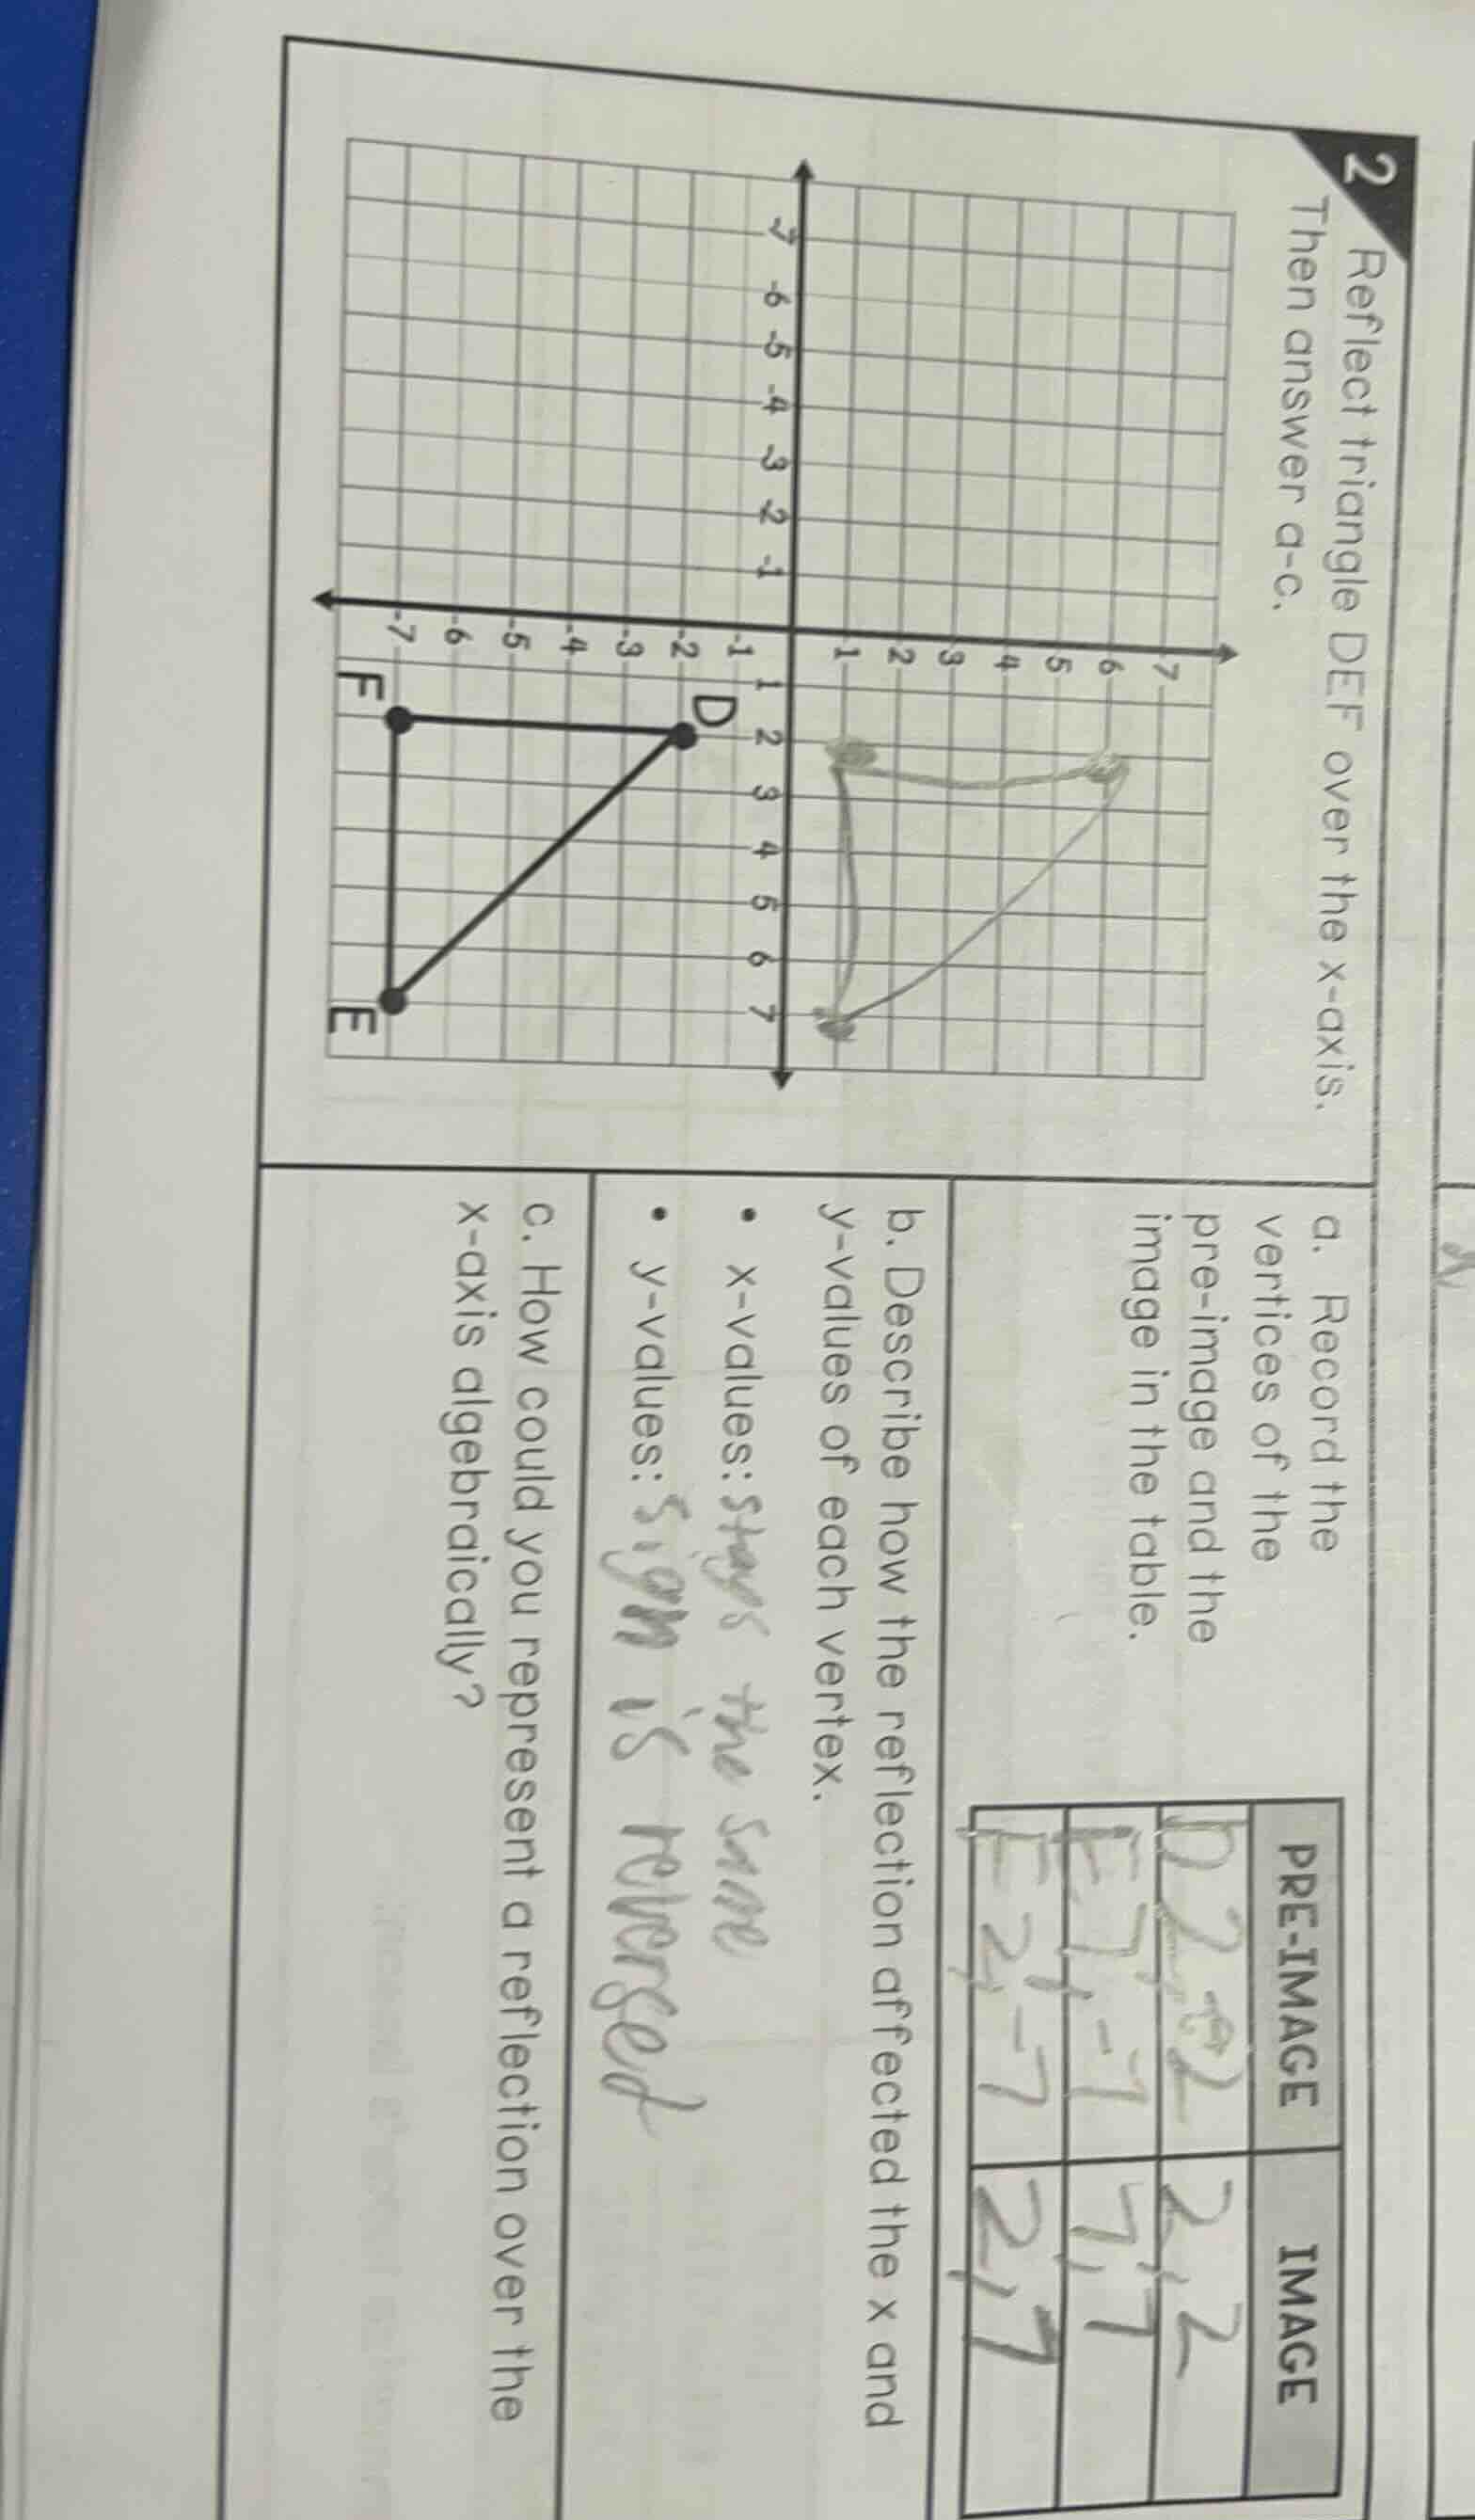 2
Reflect triangle DEF over the x-axis.
Then answer a-c.
7
6
5
4
3
2
1
-7 -6 -5 -4 -3 -2 -1 1 2 3 4 5 6 7
-1
-2
-3
-4
-5
-6
-7
D
F
E
a. Record the
vertices of the
pre-image and the
image in the table.
PRE-IMAGE IMAGE
D 2,-2 2,2
E 7,-7 7,7
F 2,-7 2,7
b. Describe how the reflection affected the x and
y-values of each vertex.
• x-values: stays the same
• y-values: sign is reversed
c. How could you represent a reflection over the
x-axis algebraically?